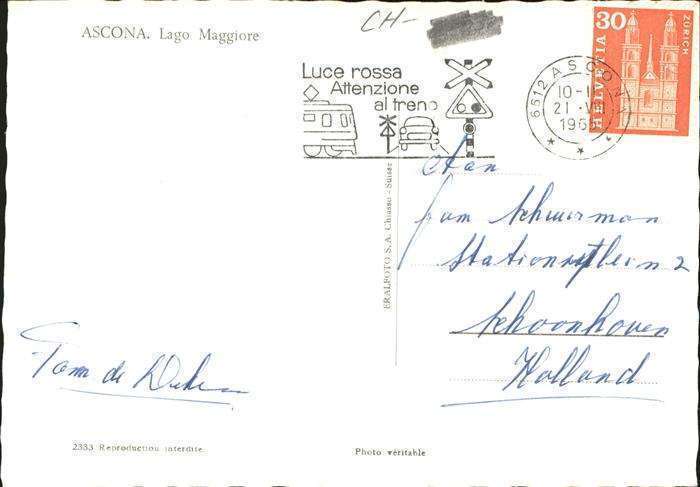 CH-
ASCONA. Lago Maggiore
Luce rossa
Attenzione
al treno
6612 ASCONA
10-1
21 V
196
30
HELVETIA
ZÜRICH
ERALFOTO S. A. Chiasso - Suisse
Aan
fam Schuurman
Stationsplein 2
Schoonhoven
Holland
Fam de
2383 Reproduction interdite
Photo véritable